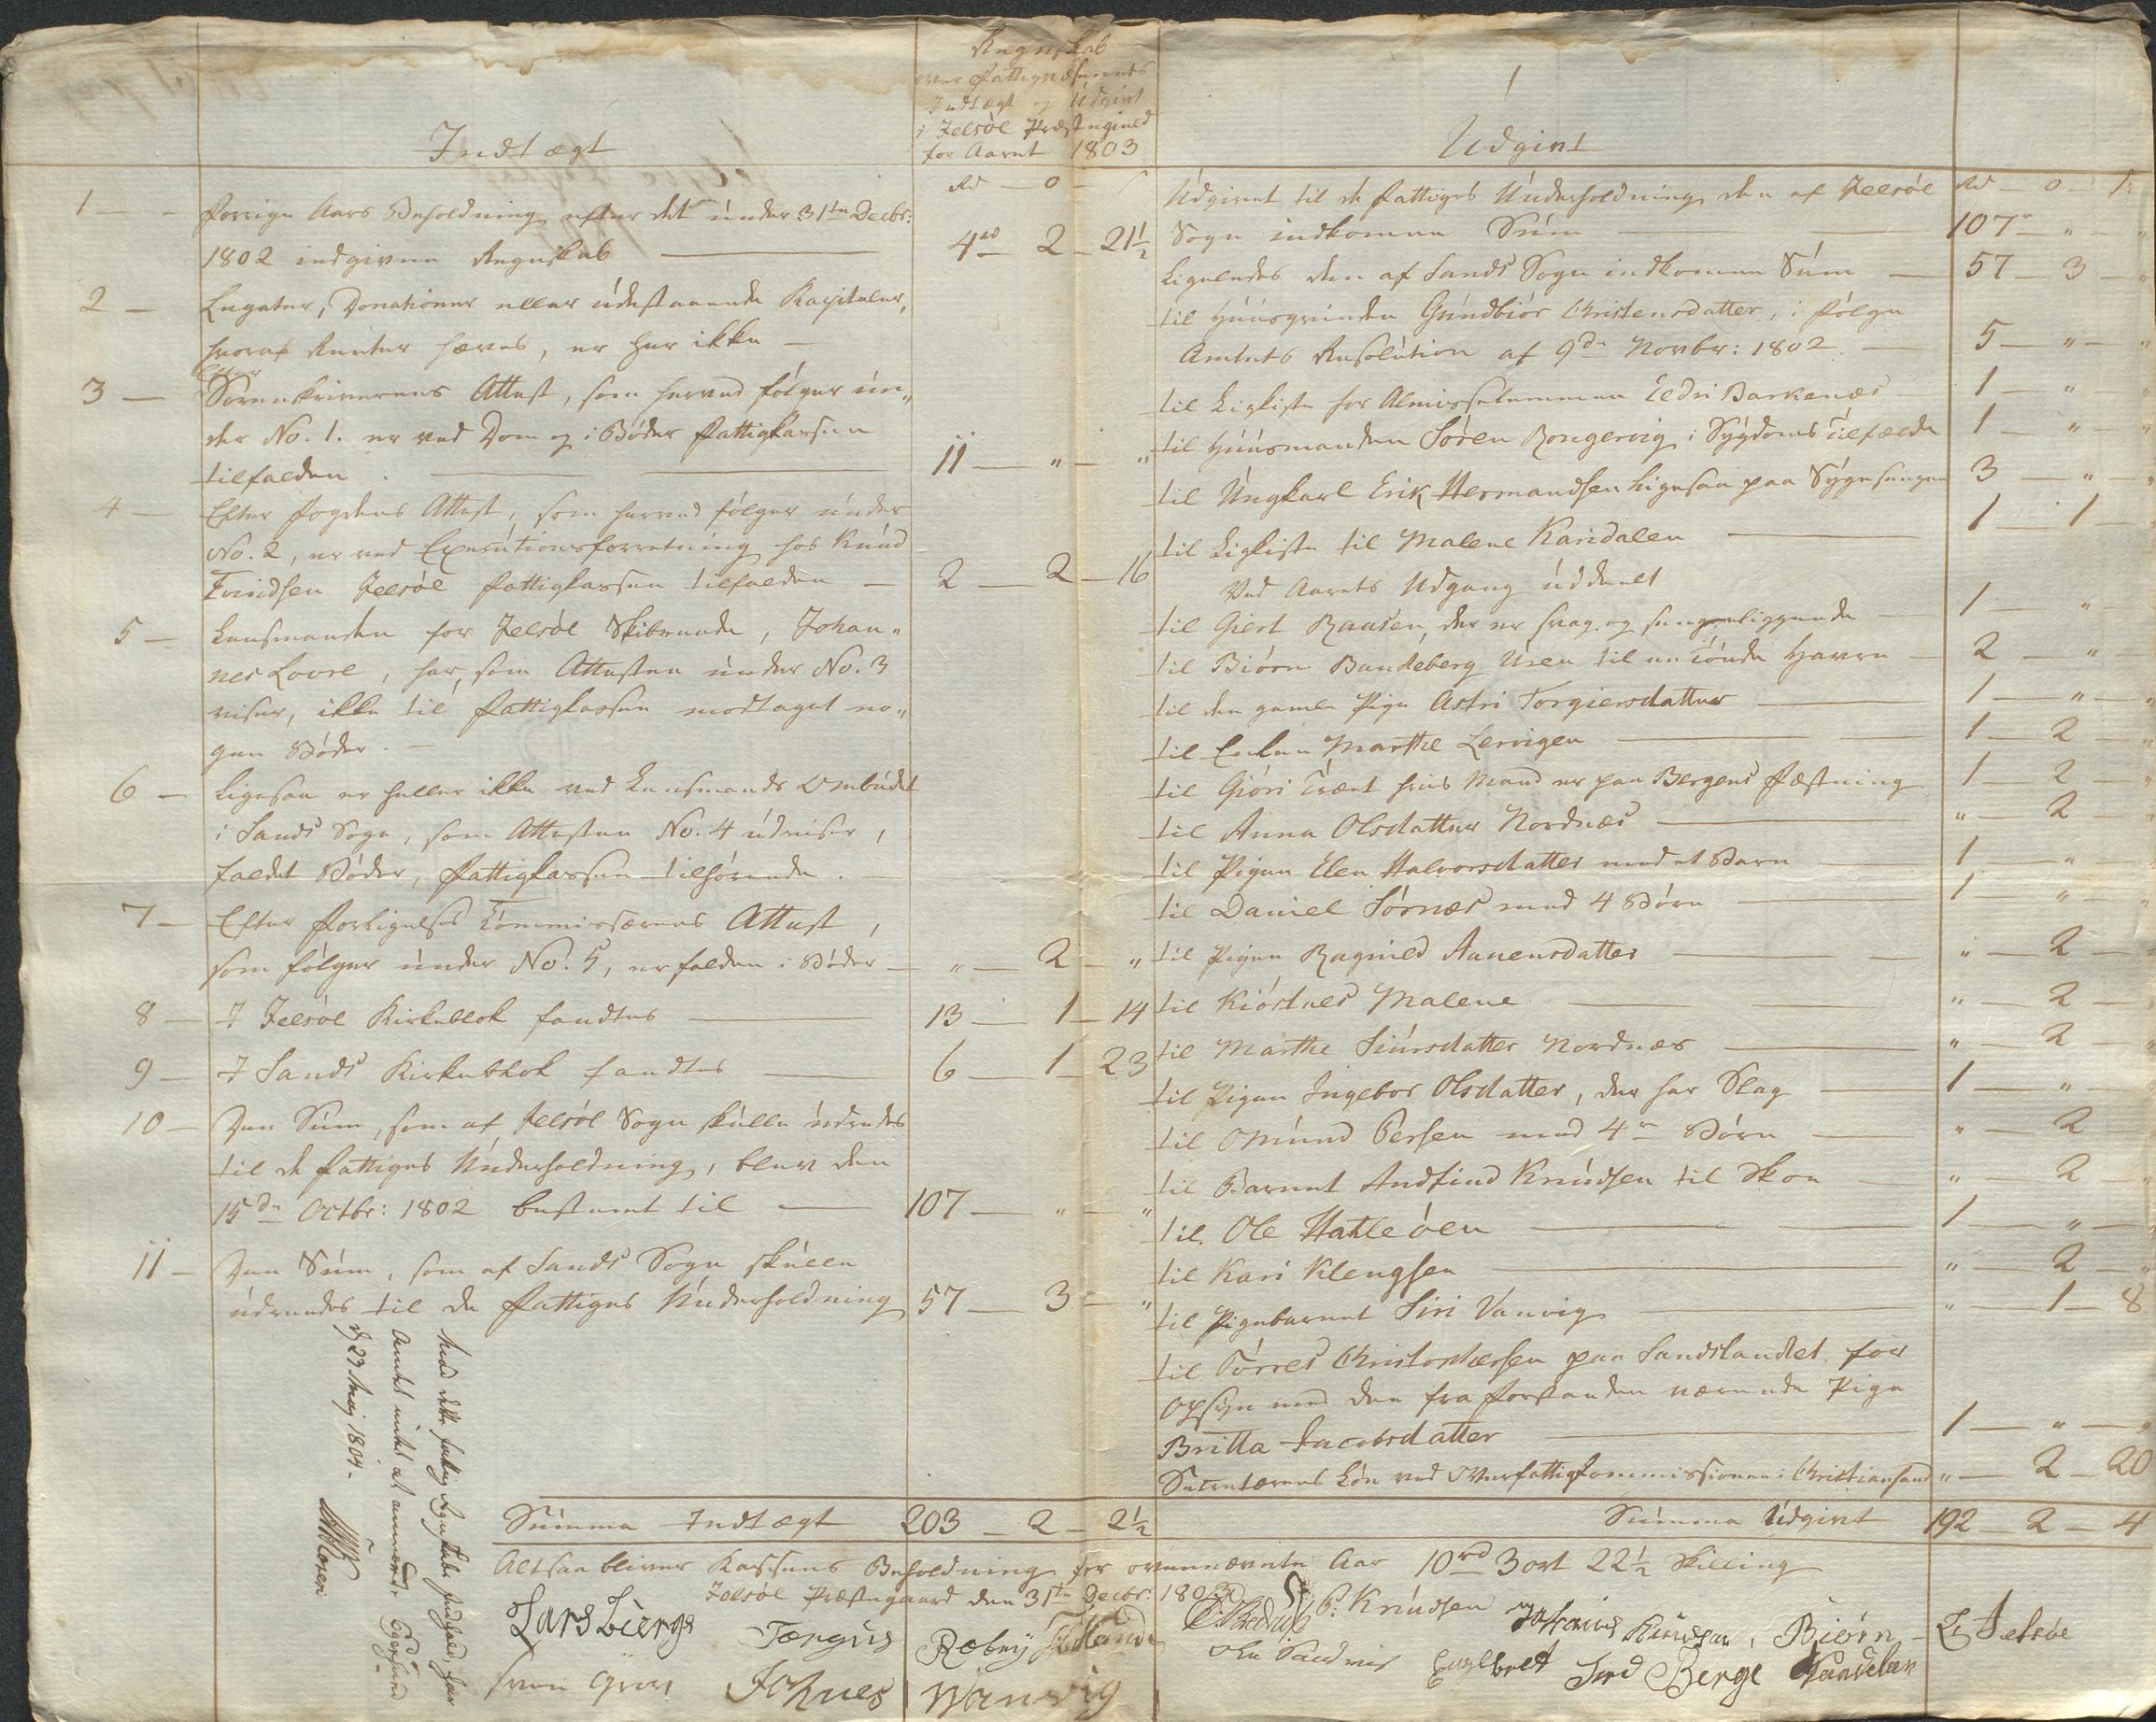 Regnskab
over Fattigvæsenets
Indtægt og Udgivt
i Jelsøe Præstegield
for Aaret 1803
Indtægt
Rd — o — s
1 — Forrige Aars Beholdning efter det under 31te Decbr:
1802 indgivne Regnskab — 4rd — 2 — 21½
2 — Legater, Donationer eller udestaaende Kapitaler,
hvoraf Renter hæves, er her ikke —
3 — Efter Sorenskriverens Attest, som herved følger un„
der No. 1. er ved Dom og i Bøder Fattigkassen
tilfalden. — 11 — „ — „
4 — Efter Fogdens Attest, som herved følger under
No. 2, er ved Executionsforretning hos Knud
Jelsøe Fattigkassen tilfalden — 2 — 2 — 16
5 — Lensmanden for Jelsøe Skibrede, Johan„
nes Lovre, har, som Attesten under No. 3
viser, ikke til Fattigkassen modtaget no„
gen Bøder. —
6 — Ligesaa er heller ikke ved Lensmands Ombudet
i Sands Sogn, som Attesten No. 4 udviser,
faldet Bøder, Fattigkassen tilhørende. —
7 — Efter Forligelses Commissærens Attest,
som følger under No. 5, er falden i Bøder — „ — 2 — „
8 — I Jelsøe Kirkeblok fandtes — 13 — 1 — 14
9 — I Sands Kirkeblok fandtes — 6 — 1 — 23
10 — Den Sum, som af Jelsøe Sogn skulle udredes
til de Fattiges Underholdning, blev den
15de Octbr: 1802 bestemt til — 107 — „ — „
11 — Den Sum, som af Sands Sogn skulle
udredes til de Fattiges Underholdning 57 — 3 — „
Summa Indtægt 203 — 2 — 2½
1
Udgivt
Rd — o — s
Udgivet til de Fattiges Underholdning den af Jelsøe
Sogn indkomne Sum — 107 — „ — „
Ligeledes den af Sands Sogn indkomne Sum — 57 — 3 — „
til Huusqvinden Gundbiør Christensdatter, i følge
Amtets Resolution af 9de Novbr: 1802. — 5 — „ — „
til Ligkiste for Almisselemmen Eedri Barkenæs — 1 — „
til Huusmanden Søren Rongevig i Sygdoms Tilfælde 1 — „ — „
til Ungkarl Erik Hermandsen ligesaa paa Sygesengen 3 — „ — „
til Ligkiste til Malene Karidalen — 1 — 1 —
Ved Aarets Udgang uddeelt
til Giert Raasen, der er svag og sengeliggende — 1 — „
til Biørn Bandeberg Uren til en Tønde Havre — 2 — „ —
til den gamle Pige Astri Torgiersdatter — 1 — „ — „
til Enken Marthe Lervigen — 1 — 2 — „
til Giøri Træet hvis Mand er paa Bergens Fæstning 1 — 2 —
til Anna Olsdatter Nordnæs — „ — 2 — „
til Pigen Elen Halvorsdatter med et Barn — 1 — „
til Daniel Sørnæs med 4 Børn — 1 — „ — „
til Pigen Ragnild Aanensdatter — „ — 2 — „
til Kiøstels Malene — „ — 2 —
til Marthe Siursdatter Nordnæs — „ — 2 — „
til Pigen Ingebor Olsdatter, der har Slag — 1 — „
til Omund Persen med 4re Børn — „ — 2
til Barnet Andfind Knudsen til Skoe — „ — 2 — „
til Ole Hatleøen — 1 — „ —
til Kari Klengsen — „ — 2 — „
til Pigebarnet Siri Vanvig — „ — 1 — 8
til Tørres Christophersen paa Sandslandet for
Opsyn med den fra Forstanden værende Pige
Britta Jacobsdatter — 1 — „ — „
Secretærens Løn ved Overfattigkommissionen i Christiansand „ — 2 — 20
Summa Udgivt 192 — 2 — 4
Altsaa bliver Kassens Beholdning for ovennævnte Aar 10rd 3 ort 22½ Skilling
Jelsøe Præstegaard den 31te Decbr: 1803.
Lars Tørgus Robey P: Knudsen Johanis Knudsen, Biørn L. Jelsøe
Svan Johnes Wanvig Ole Sandvig Engelbret Berge Vandelan
Med dette Fattig Regnskabs Indhold, har
Amtet intet at anmærke. Egersund
d 23 Maj 1804.